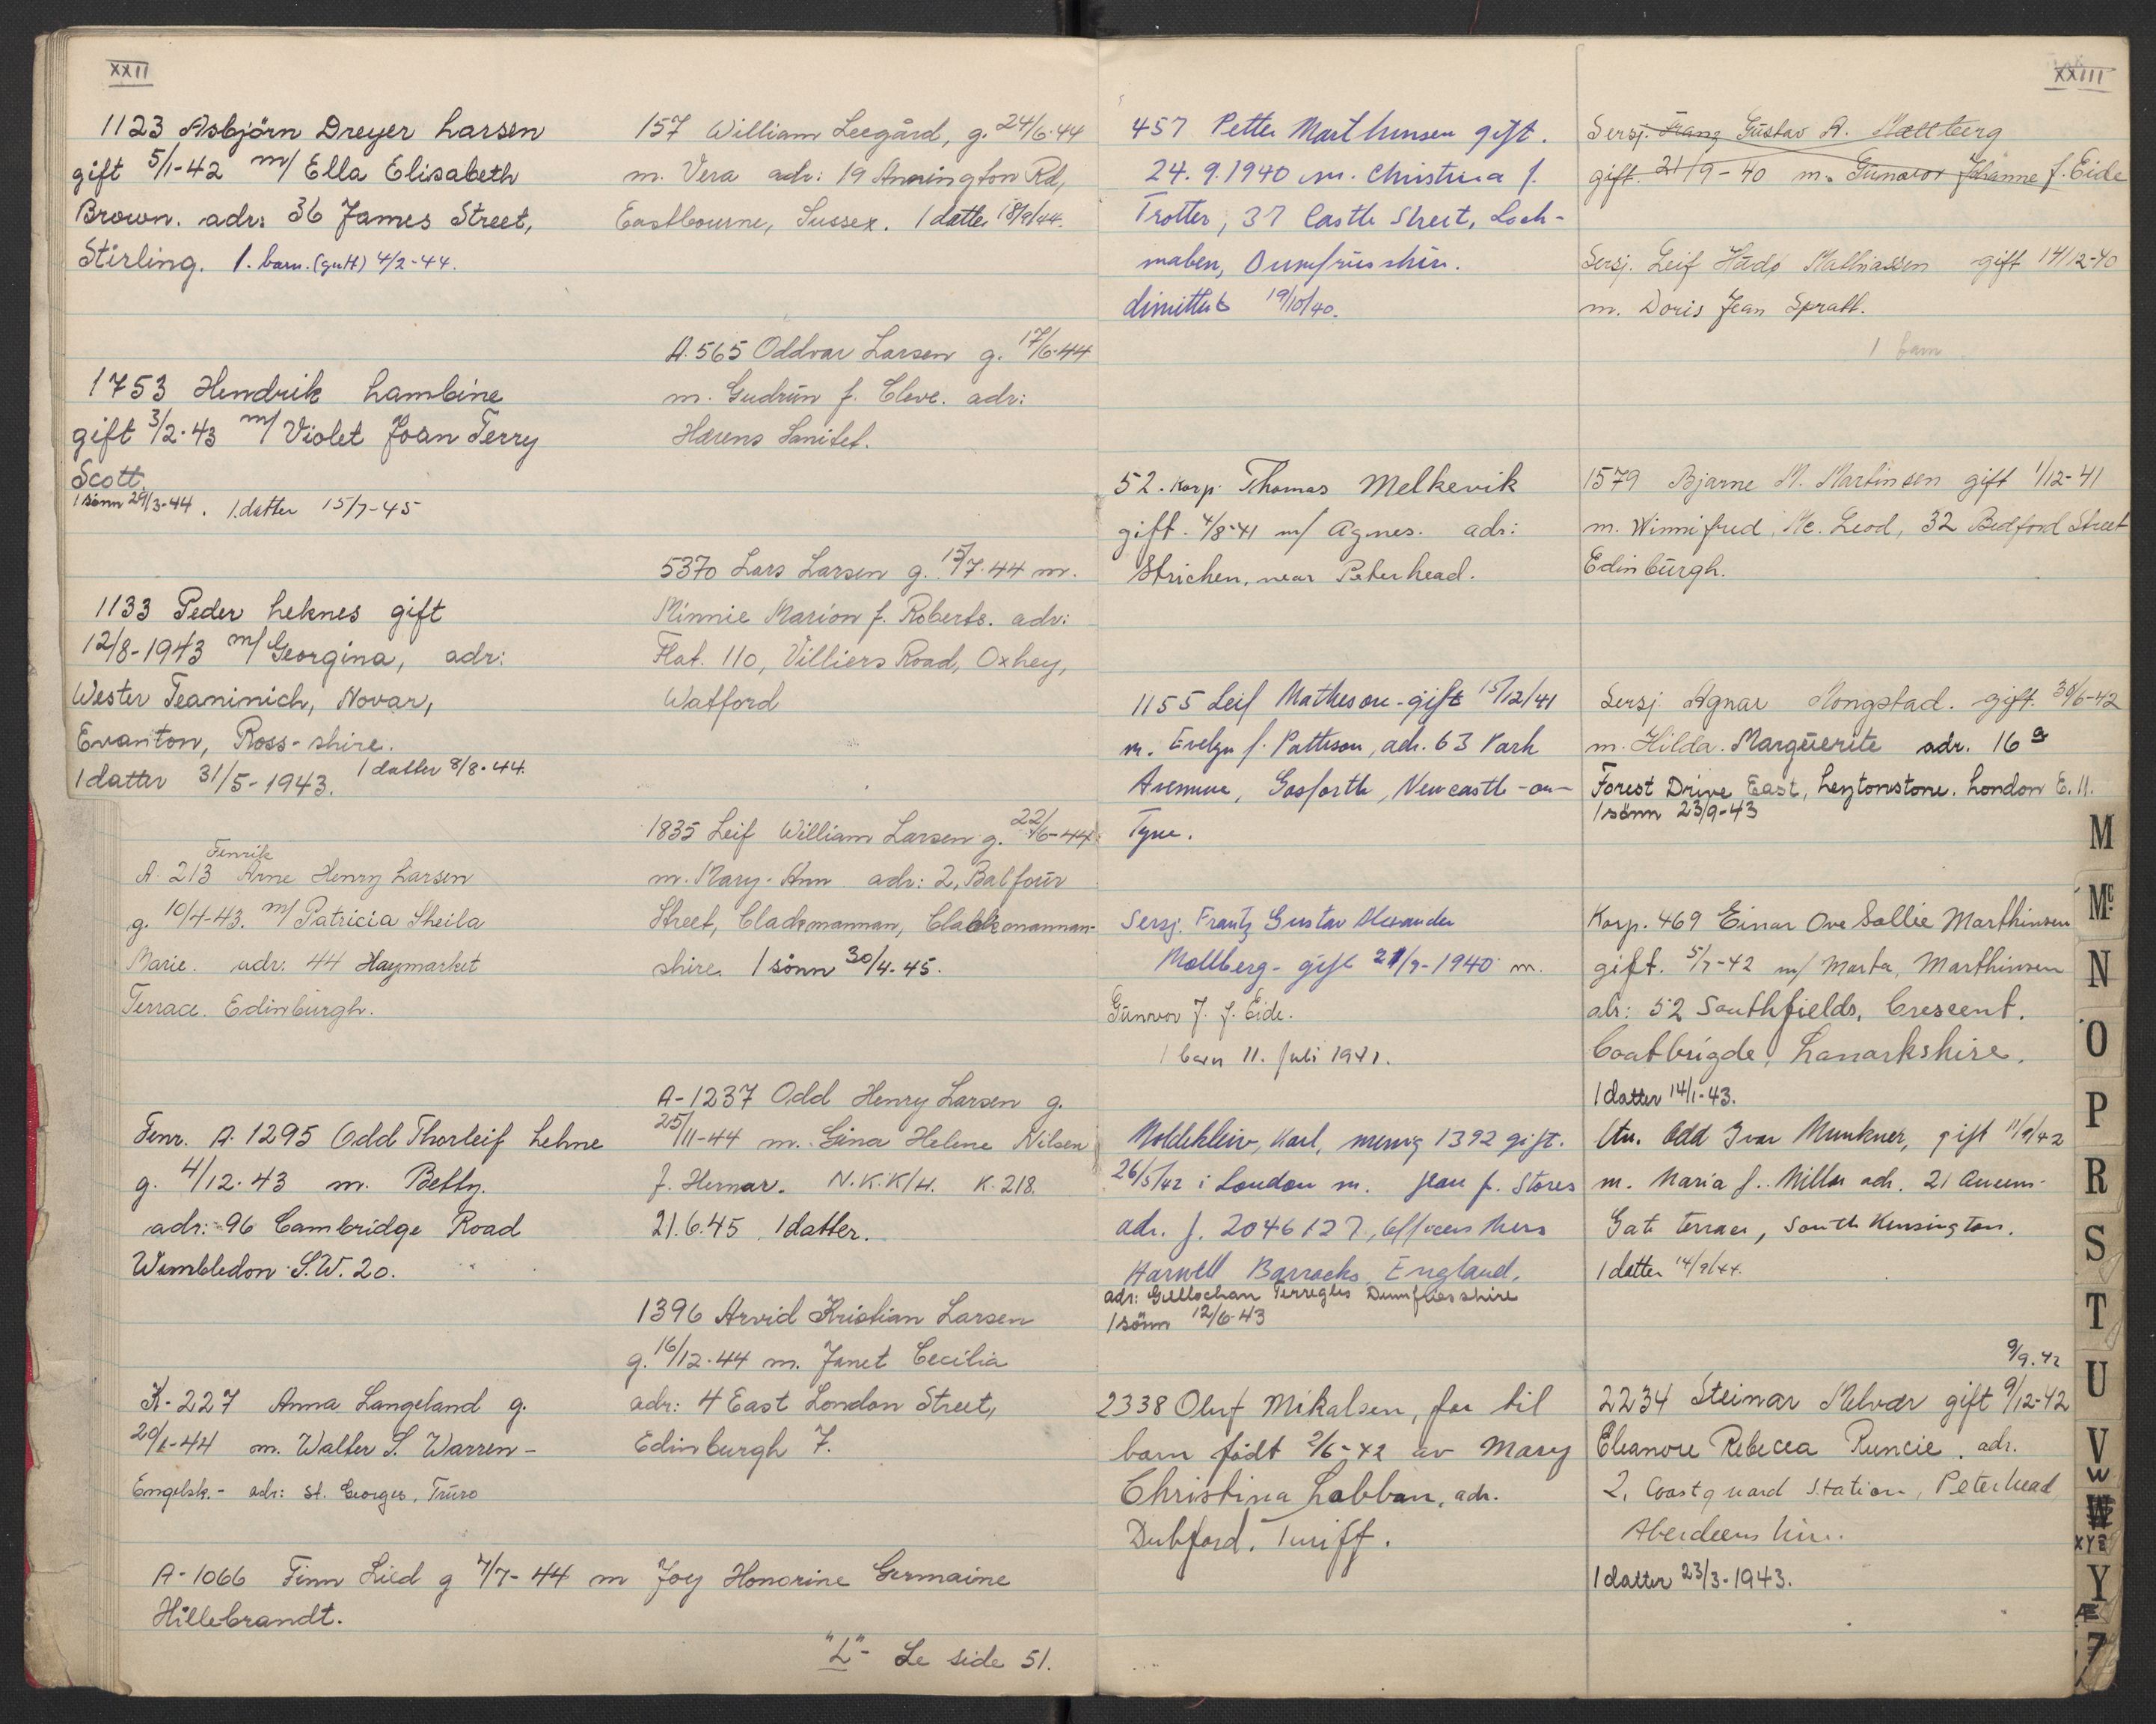 XXII
1123 Asbjörn Dreyer Larsen
gift 5/1-42 m/ Ella Elisabeth
Brown. adr: 36 James Street,
Stirling. 1. barn. (gutt) 4/2-44.
1753 Hendrik Lambine
gift 3/2-43 m/ Violet Joan Terry
Scott.
1 sönn 29/3-44. 1.datter 15/7-45
1133 Peder Leknes gift
12/8-1943 m/ Georgina, adr:
Wester Teaninich, Novar,
Evanton, Ross-shire.
1 datter 31/5-1943. 1 datter 8/8-44.
Fenrik
A. 213 Arne Henry Larsen
g. 10/4-43. m/ Patricia Sheila
Marie. adr: 44 Haymarket
Terrace. Edinburgh.
Fenr. A. 1295 Odd Thorleif Lehne
g. 4/12-43 m. Betty.
adr: 96 Cambridge Road
Wimbledon S.W. 20.
K-227 Anna Langeland g.
29/1-44 m. Walter S. Warren -
Engelsk. - adr: St. Georges, Truro
A-1066 Finn Lied g 7/7-44 m Joy Honorine Germaine
Hillebrandt.
157 William Leegård, g. 24/6-44
m. Vera adr: 19 Annington Rd,
Eastbourne, Sussex. 1 datter 18/9/44.
A. 565 Oddvar Larsen g. 17/6-44
m. Gudrun f. Cleve. adr:
Hærens Sanitet.
5370 Lars Larsen g. 15/7-44 m.
Minnie Marion f. Roberts. adr:
Flat. 110, Villiers Road, Oxhey,
Watford
1835 Leif William Larsen g. 22/6-44
m. Mary-Ann adr: 2, Balfour
Street, Clackmannan, Clackmannan-
shire. 1 sönn 30/4-45.
A-1237 Odd Henry Larsen g.
25/11-44 m. Gina Helene Nilsen
f. Hernar. N.K.K/H. K. 218.
21.6.45. 1 datter.
1396 Arvid Kristian Larsen
g. 16/12-44 m. Janet Cecilia
adr: 4 East London Street,
Edinburgh 7.
"L" - Se side 51.
XXIII
457 Petter Marthinsen gift.
24.9.1940 m. Christina f.
Trotter, 37 Castle Street, Loch-
maben, Dumfriesshire.
dimittert 19/10/40.
52. Korp. Thomas Melkevik
gift. 4/8-41 m/ Agnes. adr:
Strichen, near Peterhead.
1155 Leif Matheson - gift 15/12/41
m. Evelyn f. Pattison, adr. 63 Park
Avenue, Gosforth, Newcastle-on-
Tyne.
Sersj. Frantz Gustav Alexander
Mollberg - gift 21/9-1940 m.
Gunvor J. f. Eide.
1 barn 11. Juli 1941.
Moldekleiv, Karl, menig 1392 gift.
26/5/42 i London m. Jean f. Stores
adr. f. 2046127, Officers Mess
Harwell Barracks, England.
adr: Gillochan Terregles Dumfliesshire
1 sönn 12/6-43
2338 Oluf Mikalsen, far til
barn födt 2/6-42 av Mary
Christina Labban, adr.
Dubford. Turiff.
Sersj. Franz Gustav A. Mollberg
gift. 21/9-40 m. Gunvor Johanne f. Eide
Sersj. Leif Hadø Mathiassen gift 14/12-40
m. Doris Jean Spratt.
1 barn
1579 Bjarne M. Martinsen gift 1/12-41
m. Winnifred, Mc. Leod, 32 Bedford Street
Edinburgh.
Sersj. Agnar Mongstad. gift. 30/6-42
m. Hilda. Marguerite adr. 16 a
Forest Drive East, Leytonstone. London E.11.
1 sönn 23/9-43
Korp. 469 Einar Ove Sollie Marthinsen
gift. 5/7-42 m/ Marta, Marthinsen
adr: 52 Southfields, Crescent.
Coatbrigde, Lanarkshire.
1 datter 14/1-43.
Ltn. Odd Ivar Munkner, gift 11/9/42
m. Maria f. Miller adr. 21 Queens-
Gate terrace, South Kensington.
1 datter 14/9/44.
9/9.42
2234 Steinar Melvær gift 9/12-42
Eleanore Rebecca Runcie. adr.
2, Coastguard Station, Peterhead
Aberdeenshire.
1 datter 23/3-1943.
M
Mc
N
O
P
R
S
T
U
V
W
W
XYZ
Y
Æ